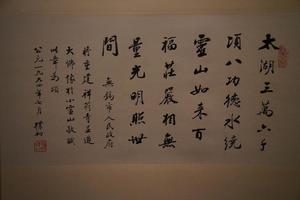 太湖三萬六千
頃八功德水繞
靈山如来百
福莊嚴相無
量光明照世
間
無錫市人民政府
於重建祥符寺並造
大佛像於小靈山敬賦
以章為頌
公元一九九四年七月
樸初